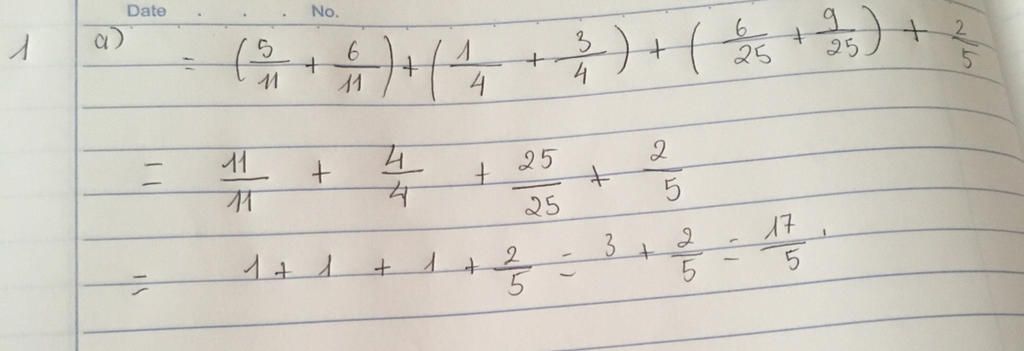 Date . . . No.
1 a) = (5/11 + 6/11) + (1/4 + 3/4) + (6/25 + 9/25) + 2/5
= 11/11 + 4/4 + 25/25 + 2/5
= 1 + 1 + 1 + 2/5 = 3 + 2/5 = 17/5.